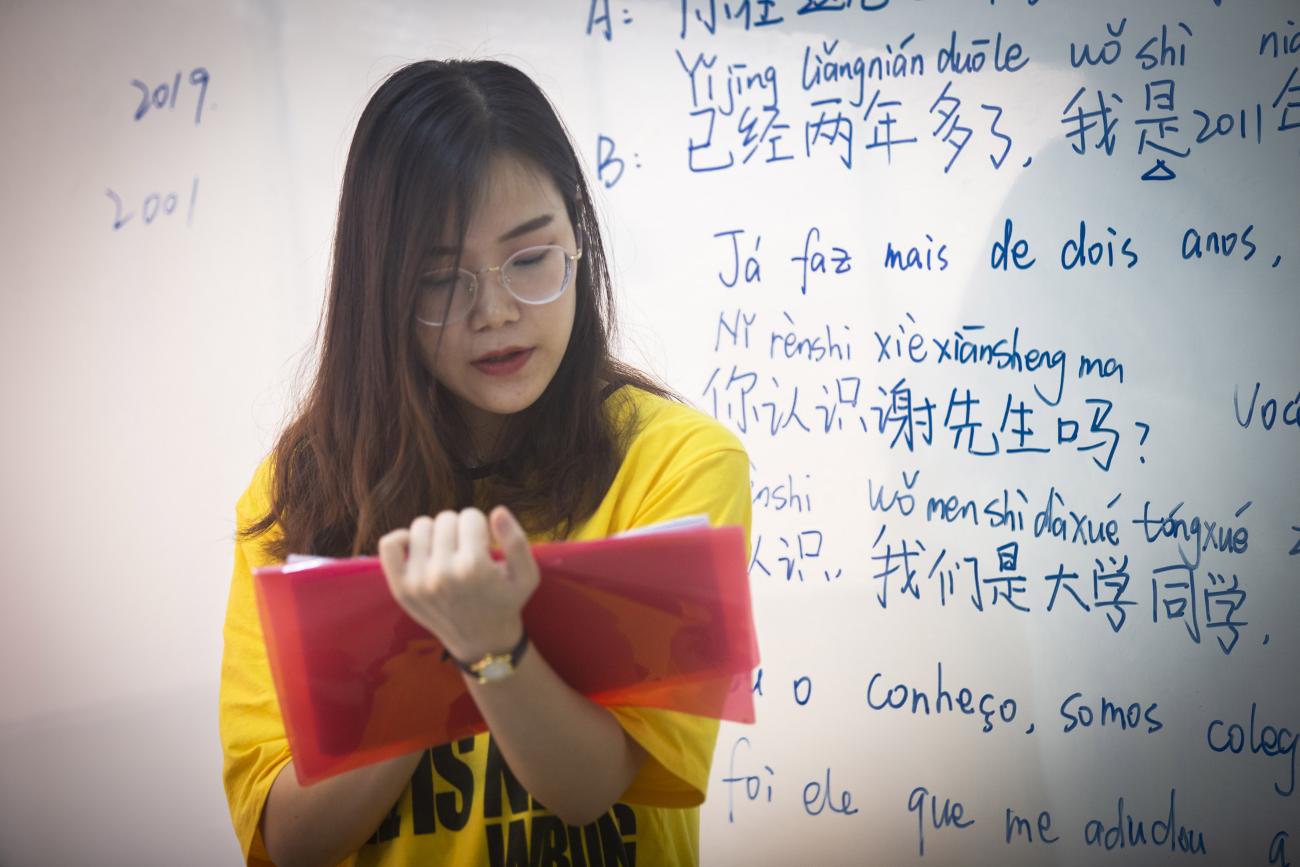 2019.
2001
A: 你在
Yǐjīng liǎngnián duōle wǒ shì
B: 已经两年多了, 我是2011年
Já faz mais de dois anos,
Nǐ rènshi xièxiānsheng ma
你认识谢先生吗?
Você
wǒmen shì dàxué tóngxué
认识, 我们是大学同学.
o conheço, somos coleg
foi ele que me adudou a